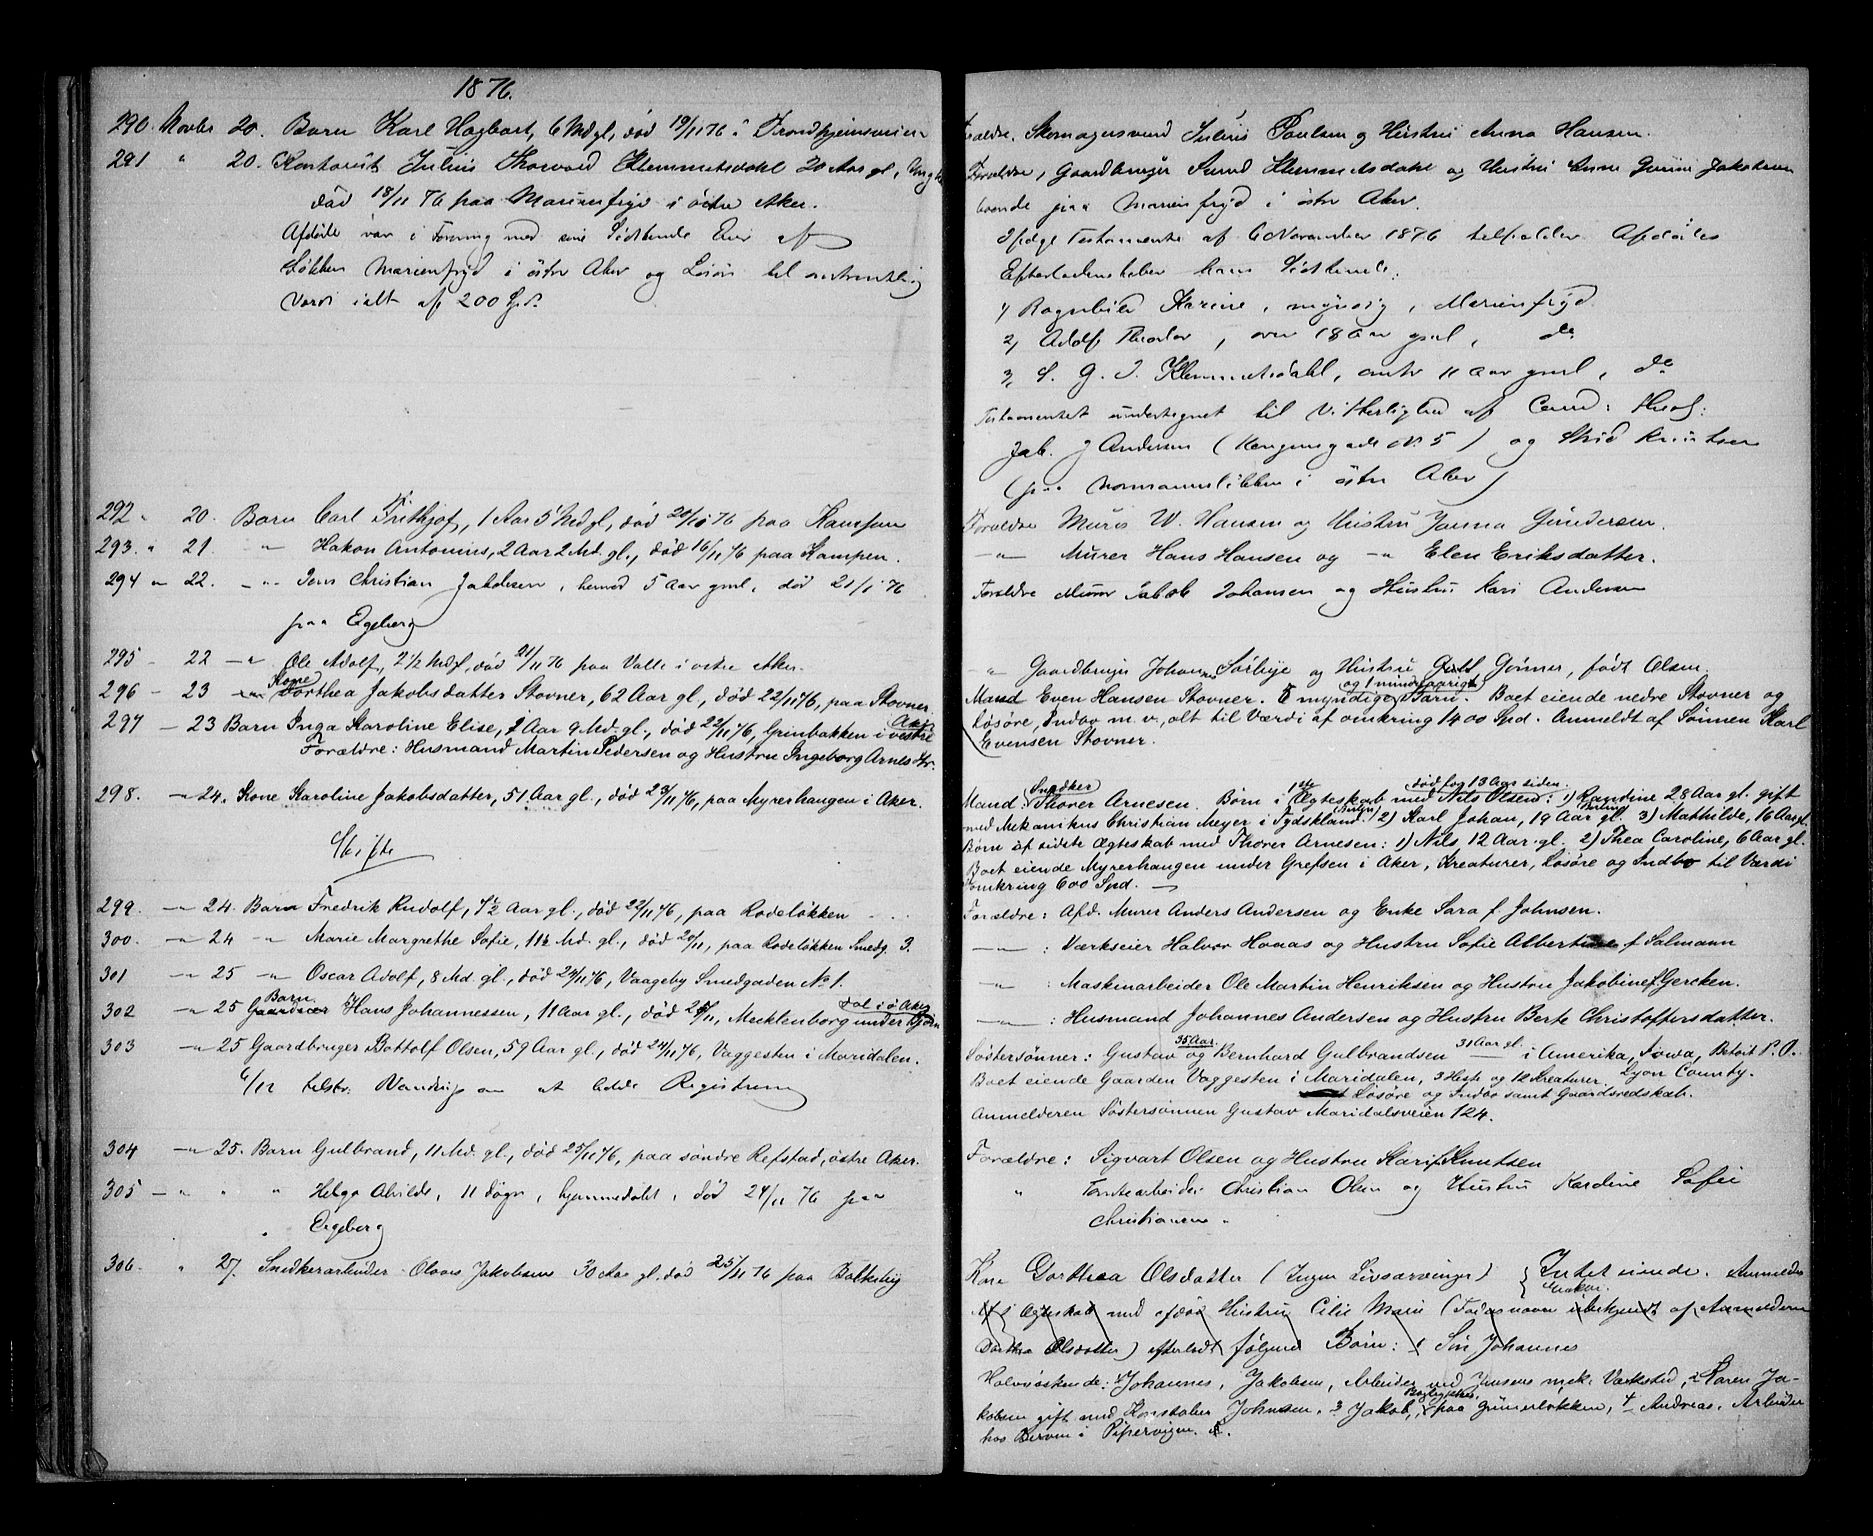 1876.
290. Novbr 20. Barn Karl Hagbart, 6 Md gl, død 19/11 76 i Trondhjemsveien
291 " 20. Kontorist Julius Thorvald Klemmetsdahl 20 Aar gl, Ungk
død 18/11 76 paa Marienfryd i östre Aker.
Afdøde var i Forening med sine Sødskende Eier af
Løkken Marienfryd i östre Aker og Løsøre til omtrentlig
Værdi ialt af 200 Spd.
292 " 20. Barn Carl Frithjof, 1 Aar 5 Md gl, død 20/11 76 paa Kampen
293. " 21 " Hakon Antonius, 2 Aar 2 Md. gl., død 16/11 76 paa Kampen.
294 " 22. " Jens Christian Jakobsen, henved 5 Aar gml, død 21/1 76
paa Egeberg
295 - 22 -"- Ole Adolf, 2 1/2 Md gl, død 21/11 76 paa Valle i østre Aker.
296 - 23 Kone Dorthea Jakobsdatter Stovner, 62 Aar gl, død 22/11 76, paa Stovner.
297 - 23 Barn Inga Karoline Elise, 2 Aar 9 Md. gl., død 22/11 76, Grinbakken i vestre Aker
Forældre: Husmand Martin Pedersen og Hustru Ingeborg Arnesdtr.
298. -"- 24. Kone Karoline Jakobsdatter, 51 Aar gl., død 23/11 76, paa Myrerhaugen i Aker.
Skifte
299. -"- 24. Barn Fredrik Rudolf, 7 1/2 Aar gl., død 22/11 76, paa Rodeløkken
300. -"- 24 -"- Marie Margrethe Sofie, 11 1/2 Md. gl., død 20/11, paa Rodeløkken Smedg. 3.
301 -"- 25 -"- Oscar Adolf, 8 Md. gl., død 24/11 76, Vaageby Smedgaden No 1.
302 -"- 25 Barn Hans Johannessen, 11 Aar gl., død 25/11, Mecklenborg under
303 -"- 25 Gaardbruger Bottolf Olsen, 59 Aar gl., død 24/11 76, Vaggesten i Maridalen.
6/12 tilskr. om at holde Registrering
304 -"- 25. Barn Gulbrand, 11 Md. gl., død 25/11 76, paa søndre Refstad, østre Aker.
305 - " " " Helga Alvilde, 11 Døgn, hjemmedøbt, død 24/11 76 paa
Egeberg
306. " 27. Snedkerarbeider Olaves Jakobsen 30 Aar gl. død 25/11 76 paa Balkeby
Forældre. Skomagersvend Julius Paulsen og Hustru Anna Hansen.
Forældre, Gaardbruger Klemmetsdahl og Hustru Anne Gurine Jakobsen
boende paa Marienfryd i östre Aker.
Ifølge Testamente af 6 November 1876 tilfalder Afdødes
Efterladenskaber hans Sødskende:
1) Ragnhild Karine, myndig, Marienfryd
2, Adolf Theodor, over 18 Aar gml, do
3, S. G. J. Klemmetsdahl, omtr 11 Aar gml, do
Testamentet undertegnet til Vitterlighed af Cand: theol:
Jak. J Andersen (Kongensgade No. 5) og Knutsen
(paa Normannsløkken i østre Aker)
Forældre Murer W. Hansen og Hustru Janna Gundersen.
-"- Murer Hans Hansen og -"- Elen Eriksdatter.
Forældre Murer Jakob Johansen og Hustru Kari Andersen
" Gaardbruger Johan Solberg og Hustru Gunner, født Olsen.
Mand Even Hansen Stovner. 5 myndige og 1 mindreaarigt Barn. Boet eiende nedre Stovner og
Løsøre, Indbo m. v., alt til Værdi af omkring 1400 Spd. Anmeldt af Sønnen Karl
Evensen Stovner.
Mand: Snedker Thorer Arnesen. Børn i 1ste Ægteskab med Nils Olsen død for 13 Aar siden: 1) Randine 28 Aar gl. gift
med Mekanikus Christian Meyer i Tydskland (Berlin) 2) Karl Johan, 19 Aar gl. 3) Mathilde, 16 Aar gl.
Børn af sidste Ægteskab med Thorer Arnesen: 1) Nils 12 Aar gl. 2) Thea Caroline, 6 Aar gl.
Boet eiende Myrerhaugen under Grefsen i Aker, Kreaturer, Løsøre og Indbo til Værdi
omkring 600 Spd.
Forældre: Afd. Murer Anders Andersen og Enke Sara f. Johnsen.
-"-: Værkseier Halvor Hovaas og Hustru Sofie Albertine f Salmann
-"-: Maskinarbeider Ole Martin Henriksen og Hustru Jakobine f Gercken.
-"-: Husmand Johannes Andersen og Hustru Berte Christoffersdatter.
Søstersønner: Gustav 35 Aar og Bernhard Gulbrandsen 31 Aar gl. i Amerika, Iowa, Beloit P.O.
Boet eiende Gaarden Vaggesten i Maridalen, 3 Heste og 12 Kreaturer. Lyon County.
Løsøre og Indbo samt Gaardsredskab.
Anmelderen Søstersønnen Gustav Maridalsveien 124.
Forældre: Sigvart Olsen og Hustru Kari f Knutsen
" Christian Olsen og Hustru Karoline Sofie
Christiansen.
Kone Dorthea Olsdatter (Ingen Livsarvinger) { Intet eiende. Anmelder
Enken.
Af Ægteskab med afdøde Hustru Cilie Marie (Fødenavn ubekjendt af Anmelderen
Dorthea Olsdatter) efterladt følgende Børn: 1 Søn Johannes
Halvsøskende: 1 Johannes Jakobsen, Arbeider ved Jensens mek. Værksted, 2 Karen Ja-
kobsen gift med Konstabel Johnsen. 3 Jakob, paa Grünerløkken, 4 Andreas, Arbeider
hos i Pipervigen.